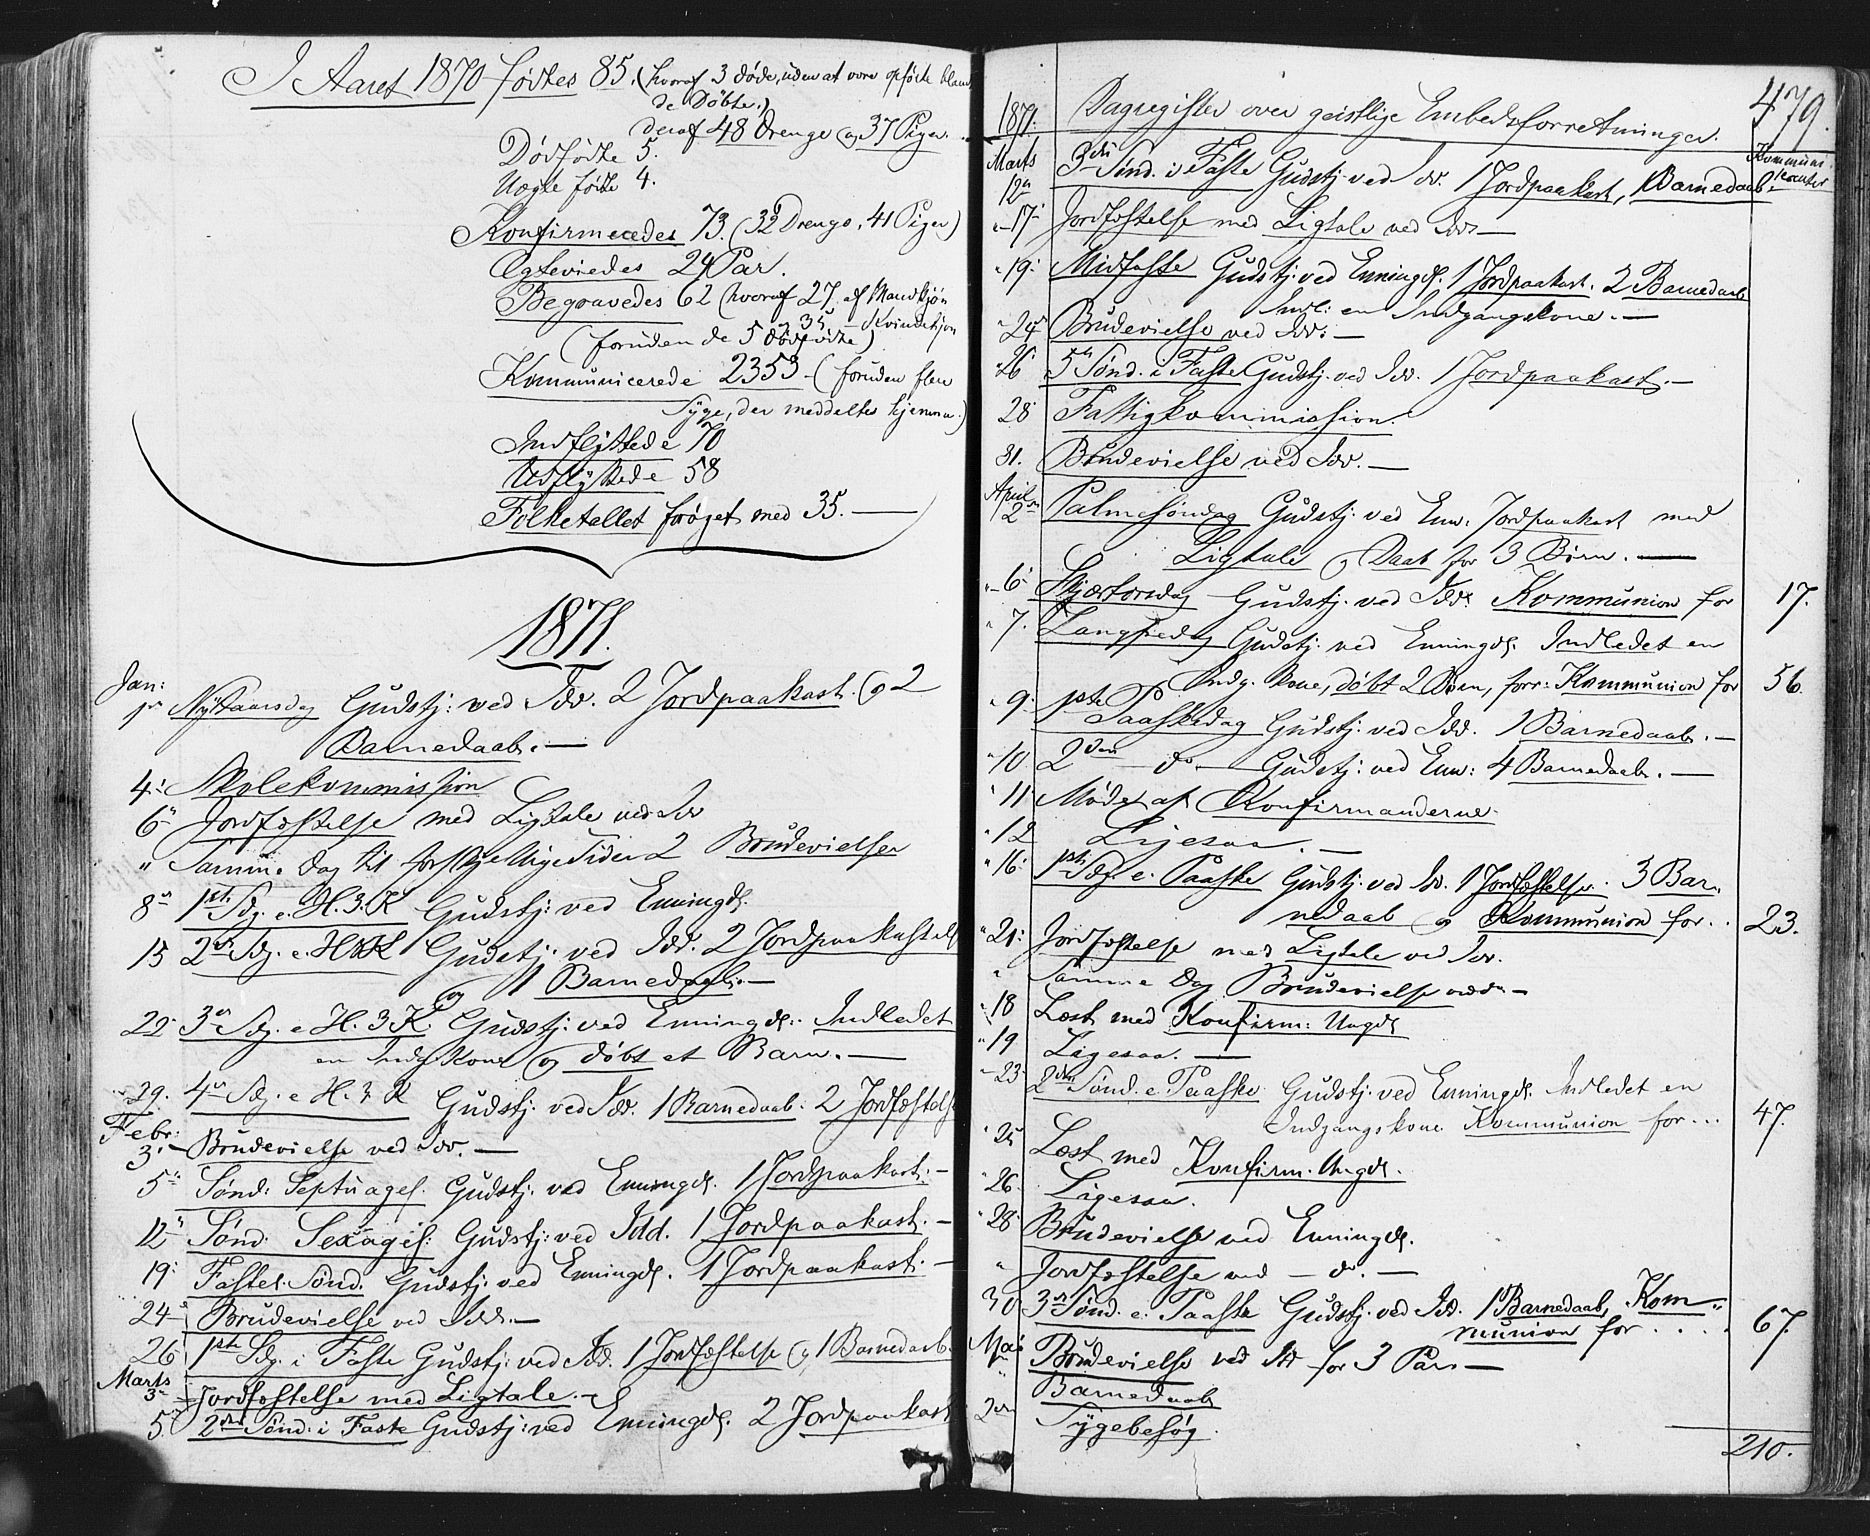 I Aaret 1870 fødtes 85. (hvoraf 3 døde, uden at være opførte bland
de Døbte.)
deraf 48 Drenge og 37 Piger.
Dødfødte 5.
Uægte fødte 4.
Konfirmeredes 73. (32 Drenge, 41 Piger)
Egteviedes 24 Par.
Begravedes 62 (hvoraf 27 af Mandkjøn
" 35 - Kvindekjøn
(foruden de 5 dødfødte)
Kommunicerede 2353 - (foruden flere
Syge, der meddeltes hjemme.)
Indflyttede 70
Udflyttede 58
Folketallet forøget med 35. —
1871.
Jan:
1ste Nytaarsdag Gudstj: ved Idd. 2 Jordpaakast. og 2
Barnedaab. —
4: Skolekommission
6" Jordfæstelse med Ligtale ved Idd
" Samme Dag til forskjellige Tider 2 Brudevielser
8" 1ste Sdg. e. H. 3. K Gudstj: ved Enningd.
15 2den Sdg. e. H. 3 K Gudstj: ved Idd. 2 Jordpaakastels
og 1 Barnedaab. —
22 3die Sdg. e H. 3 K. Gudstj: ved Enningd: Indledet
en Indg. Kone og døbt et Barn. —
29. 4de Sdg. e H. 3. K Gudstj. ved Idd. 1 Barnedaab. 2 Jordfæstels
Febr:
3. Brudevielse ved Idd. —
5" Sønd: Septuages. Gudstj. ved Enningd. 1 Jordpaakast. —
12" Sønd: Sexages: Gudstj: ved Idd. 1 Jordpaakast. —
19: Fastel. Sønd. Gudstj: ved Enningd. 1 Jordpaakast. —
24 Brudevielse ved Idd. —
26 1ste Sdg. i Faste Gudstj: ved Idd. 1 Jordfæstelse og 1 Barnedaab.
Marts
3 Jordfæstelse med Ligtale. —
5. 2den Sønd: i Faste Gudstj: ved Enningd. 2 Jordpaakast
479.
1871. Dagregister over geistlige Embedsforretninger. Kommunikanter
Marts
12 3die Sønd. i Faste Gudstj. ved Idd. 1 Jordpaakast, 1 Barnedaab.
17 Jordfæstelse med Ligtale ved Idd. —
" 19: Midfaste Gudstj: ved Enningd. 1 Jordpaakast. 2 Barnedaab
Indl: en Indgangskone. —
" 24 Brudevielse ved Idd: —
" 26 5te Sønd. i Faste Gudstj. ved Idd. 1 Jordpaakast. —
28 Fattigkommission.
31. Brudevielse ved Idd. —
April
2 Palmesøndag Gudstj. ved Enn: Jordpaakast med
Ligtale og Daab for 3 Børn. —
" 6 Skjærtorsdag Gudstj. ved Idd: Kommunion for 17.
" 7. Langfredag Gudstj. ved Enningd. Indledet en
Indg. kone, døbt 2 Børn, forr: Kommunion for 56.
" 9. 1ste Paaskedag Gudstj: ved Idd. 1 Barnedaab. —
" 10 2den — do — Gudstj: ved Enn: 4 Barnedaab. —
" 11 Møde af Konfirmanderne
" 12 Ligesaa. —
" 16: 1ste Sdg. e. Paaske Gudstj: ved Idd. 1 Jordfæstelse. 3 Bar"
nedaab og Kommunion for.. 23.
" 21: Jordfæstelse med Ligtale ved Idd.
" Samme Dag Brudevielse —
" 18 Læst med Konfirm: Ungd
" 19 Ligesaa. —
" 23 2den Sønd. e. Paaske Gudstj: ved Enningd. Indledet en
Indgangskone Kommunion for... 47.
" 25 Læst med Konfirm. Ungd.
" 26 Ligesaa.
" 28 Brudevielse ved Enningd.
" Jordfæstelse ved — do. —
30 3die Sønd. e. Paaske Gudstj: ved Idd. 1 Barnedaab, Kom"
munion for .... 67.
Mai
1 Brudevielse ved Idd for 3 Par —
" Barnedaab
2den Sygebesøg.
210.